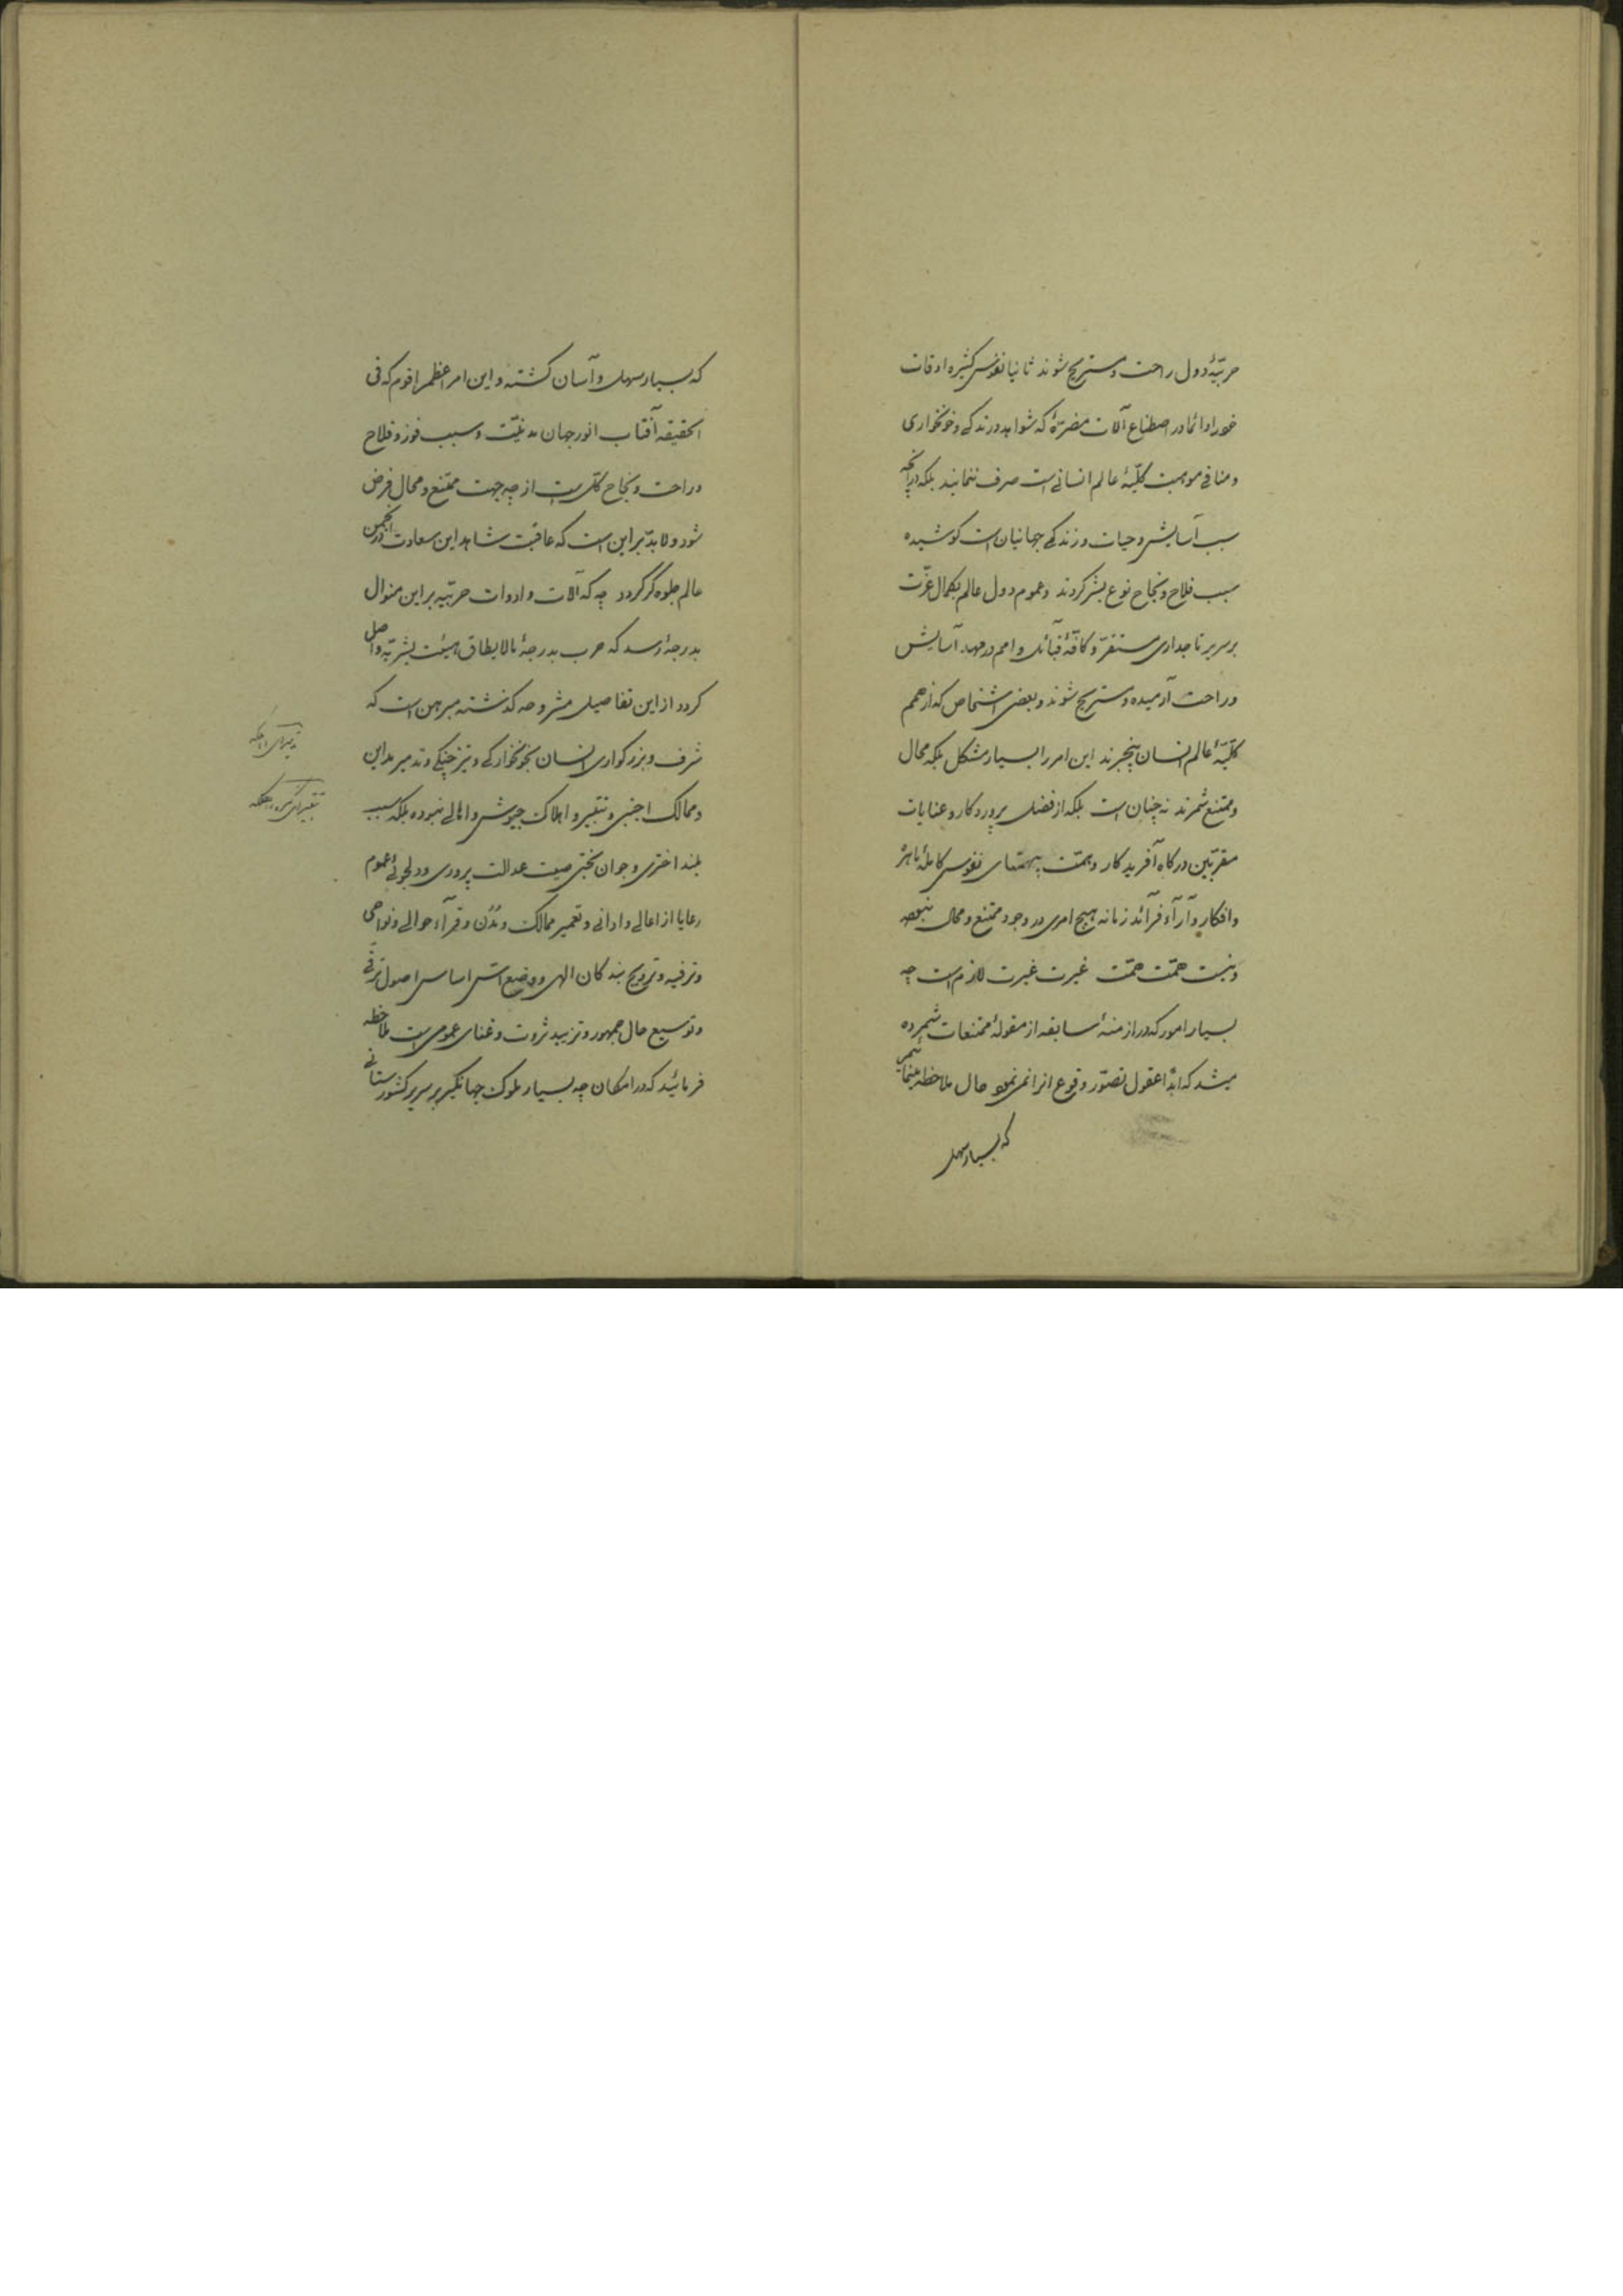 حربیّهٔ دول راحت و مستریح شوند ثانیا نفوس کثیره اوقات
خود را دائما در اصطناع آلات مضرّهٔ که شواهد درندگی و خونخواری
و منافی موهبت کلّیّهٔ عالم انسانی است صرف ننمایند بلکه در آنچه
سبب آسایش و حیات و زندگی جهانیان است کوشیده
سبب فلاح و نجاح نوع بشر گردند و عموم دول عالم بکمال عزّت
بر سریر تاجداری مستقرّ و کافّهٔ قبائل و امم در مهد آسایش
و راحت آرمیده و مستریح شوند و بعضی اشخاص که از همم
کلّیّهٔ عالم انسان بیخبرند این امر را بسیار مشکل بلکه محال
و ممتنع شمرند نه چنان است بلکه از فضل پروردگار و عنایات
مقرّبین درگاه آفریدگار و همّت بیهمتای نفوس کاملهٔ ماهره
و افکار و آرآء فرآئد زمانه هیچ امری در وجود ممتنع و محال نبوده
و نیست همّت همّت غیرت غیرت لازم است چه
بسیار امور که در ازمنهٔ سابقه از مقولهٔ ممتنعات شمرده
میشد که ابدًا عقول تصوّر وقوع انرا نمینمود حال ملاحظه مینمائیم
که بسیار سهل
که بسیار سهل و آسان گشته و این امر اعظم اقوم که فی
الحقیقه آفتاب انور جهان مدنیّت و سبب فوز و فلاح
و راحت و نجاح کلّ است از چه جهت ممتنع و محال فرض
شود و لا بدّ بر این است که عاقبت شاهد این سعادت در انجمن
عالم جلوه گر گردد چه که آلات و ادوات حربیّه بر این منوال
بدرجهٔ رسد که حرب بدرجهٔ ما لا یطاق هیئت بشریّه واصل
گردد از این تفاصیل مشروحه گذشته مبرهن است که
شرف و بزرگواری انسان بخونخوارگی و تیز چنگی و تدمیر مداین
و ممالک اجنبی و تتبیر و اهلاک جیوش و اهالی نبوده بلکه سبب
بلند اختری و جوان بختی صیت عدالت پروری و دلجوئی عموم
رعایا از اعالی و ادانی و تعمیر ممالک و مُدُن و قرآء حوالی و نواحی
و ترفیه و ترویح بندگان الهی و وضع اسّ اساس اصول ترقّی
و توسیع حال جمهور و تزیید ثروت و غنای عمومی است ملاحظه
فرمائید که در امکان چه بسیار ملوک جهانگیر بر سریر کشورستانی